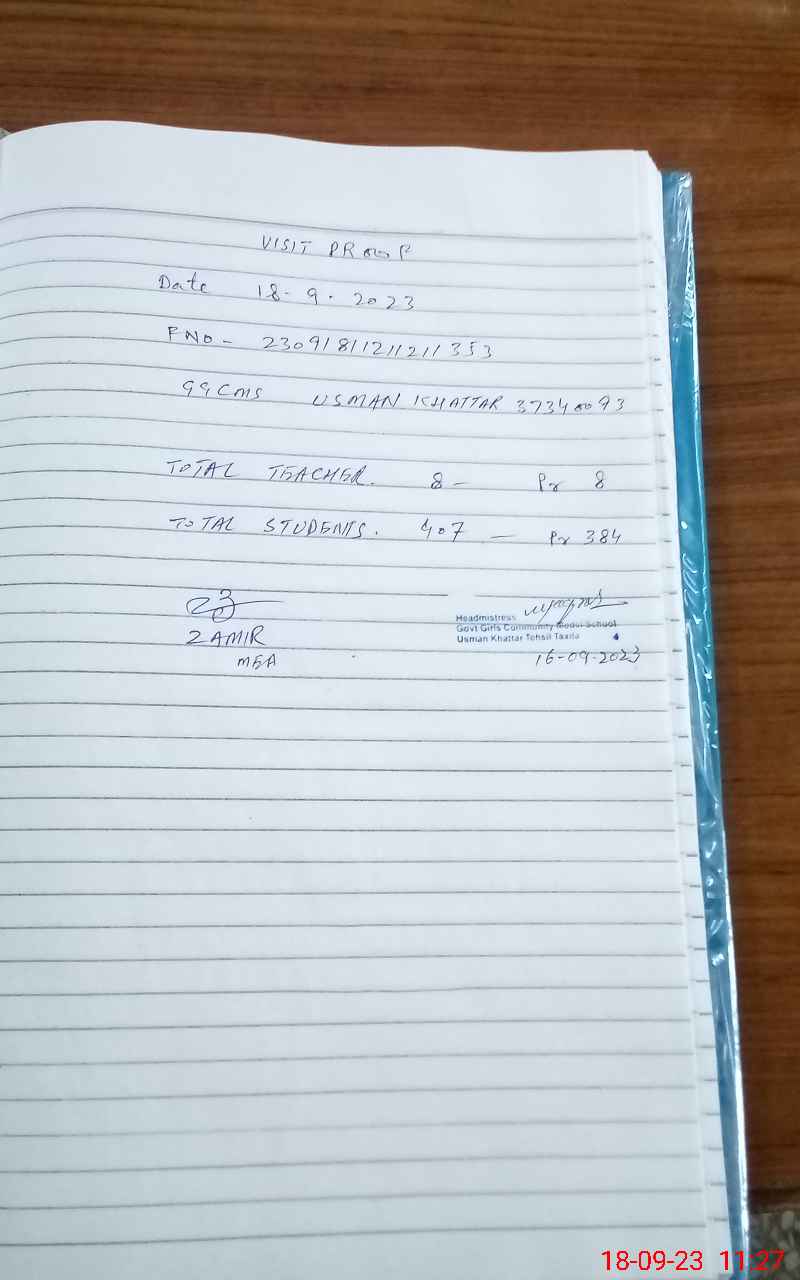 VISIT PROOF
Date 18-9.2023
FNO- 23091811211211353
GGCMS USMAN KHATTAR 37340093
TOTAL TEACHER. 8- Pr 8
TOTAL STUDENTS. 407 - Pr 384
ZAMIR
MEA
Headmistress
Govt Girls Community Model School
Usman Khattar Tehsil Taxila
16-09-2023
18-09-23 11:27